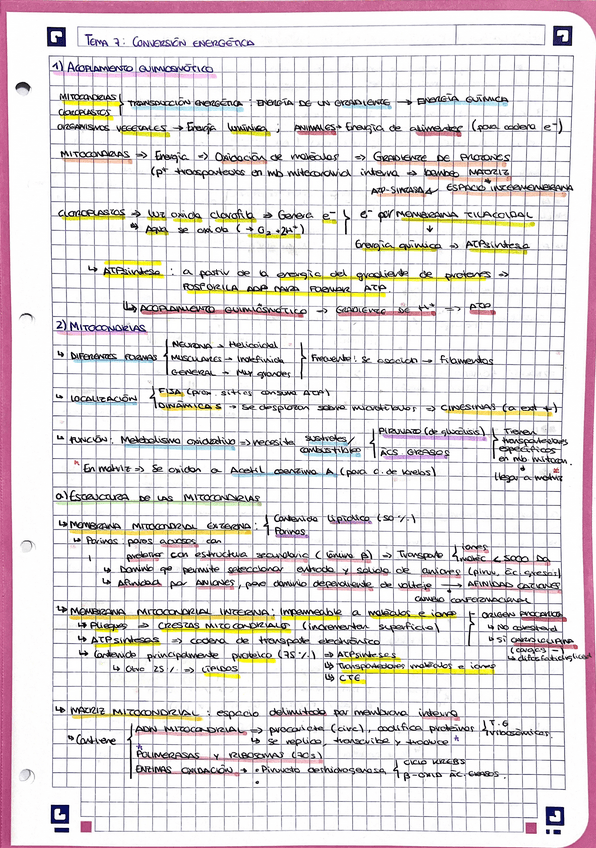 TEMA 7: CONVERSIÓN ENERGÉTICA
1) ACOPLAMIENTO QUIMIOSMÓTICO
MITOCONDRIAS
CLOROPLASTOS
TRANSDUCCIÓN ENERGÉTICA: ENERGÍA DE UN GRADIENTE → ENERGÍA QUÍMICA
ORGANISMOS VEGETALES → Energía lumínica; ANIMALES → Energía de alimentos (para cadena e-)
MITOCONDRIAS => Energía => Oxidación de moléculas => GRADIENTE DE PROTONES
(p+ transportados en mb mitocondrial interna => bombeo MATRIZ
ATP-SINTASA ESPACIO INTERMEMBRANA
CLOROPLASTOS => Luz oxida clorofila => Genera e-
Agua se oxida (→ O2 + 2H+)
e- por MEMBRANA TILACOIDAL
Energía química => ATPsintasa
↳ ATPsintasa: a partir de la energía del gradiente de protones =>
FOSFORILA ADP PARA FORMAR ATP
↳ ACOPLAMIENTO QUIMIOSMÓTICO → GRADIENTE DE H+ => ATP
2) MITOCONDRIAS
↳ DIFERENTES FORMAS
NEURONA → Helicoidal
MUSCULARES → Indefinida
GENERAL → Muy grandes
Frecuente: se asocian → filamentos
↳ LOCALIZACIÓN
FIJA (prox. sitios consumo ATP)
DINÁMICAS → Se desplazan sobre microtúbulos => CINESINAS (a ext +)
↳ FUNCIÓN: Metabolismo oxidativo => necesita sustratos/
combustibles
PIRUVATO (de glucólisis)
ÁCS GRASOS
Tienen
transportadores
específicos
en mb mitocon.
llegar a matriz
* En matriz => Se oxidan a Acetil coenzima A (para c. de krebs)
a) ESTRUCTURA DE LAS MITOCONDRIAS
↳ MEMBRANA MITOCONDRIAL EXTERNA:
Contenido lipídico (50%)
Porinas
↳ Porinas: poros acuosos con
proteína con estructura secundaria (lámina β) => Transporte
iones
moléc < 5000 Da
↳ Dominio que permite seleccionar entrada y salida de aniones (piruv, ác. grasos)
↳ Afinidad por ANIONES, pero dominio dependiente de voltaje → AFINIDAD CATIONES
CAMBIO CONFORMACIONAL
↳ MEMBRANA MITOCONDRIAL INTERNA: impermeable a moléculas e iones
↳ Pliegues => CRESTAS MITOCONDRIALES (incrementan superficie)
↳ ATPsintasas → cadena de transporte electrónico
↳ Contenido principalmente proteico (75%) => ATPsintasas
↳ Otro 25% => LÍPIDOS
↳ Transportadores moléculas e iones
↳ CTE
ORIGEN PROCARIOTA
↳ No colesterol
↳ Sí CARDIOLIPINA
(cargas -)
↳ difosfatidilglicerol
↳ MATRIZ MITOCONDRIAL: espacio delimitado por membrana interna
* Contiene
ADN MITOCONDRIAL => procariota (circ), codifica proteínas
↳ se replica, transcribe y traduce
POLIMERASAS Y RIBOSOMAS (70s)
ENZIMAS OXIDACIÓN → • Piruvato deshidrogenasa
CICLO KREBS
β-OXID ÁC. GRASOS.